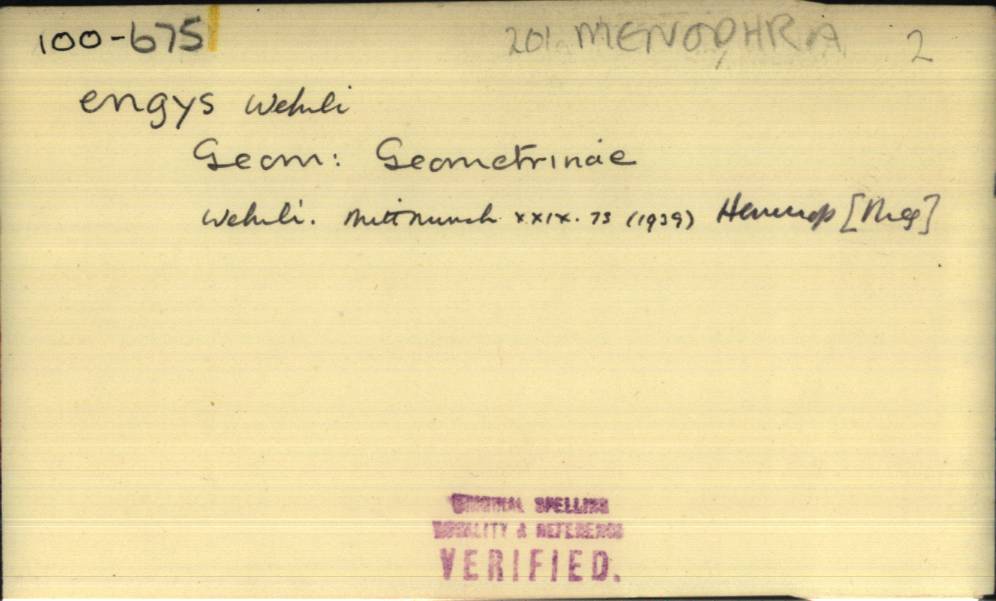 100-675 201 MENOPHRA 2
engys Wehrli
Geom: Geometrinae
Wehrli. Mitt Munch xxix. 73 (1939)
ORIGINAL SPELLING
LOCALITY & REFERENCE
VERIFIED.